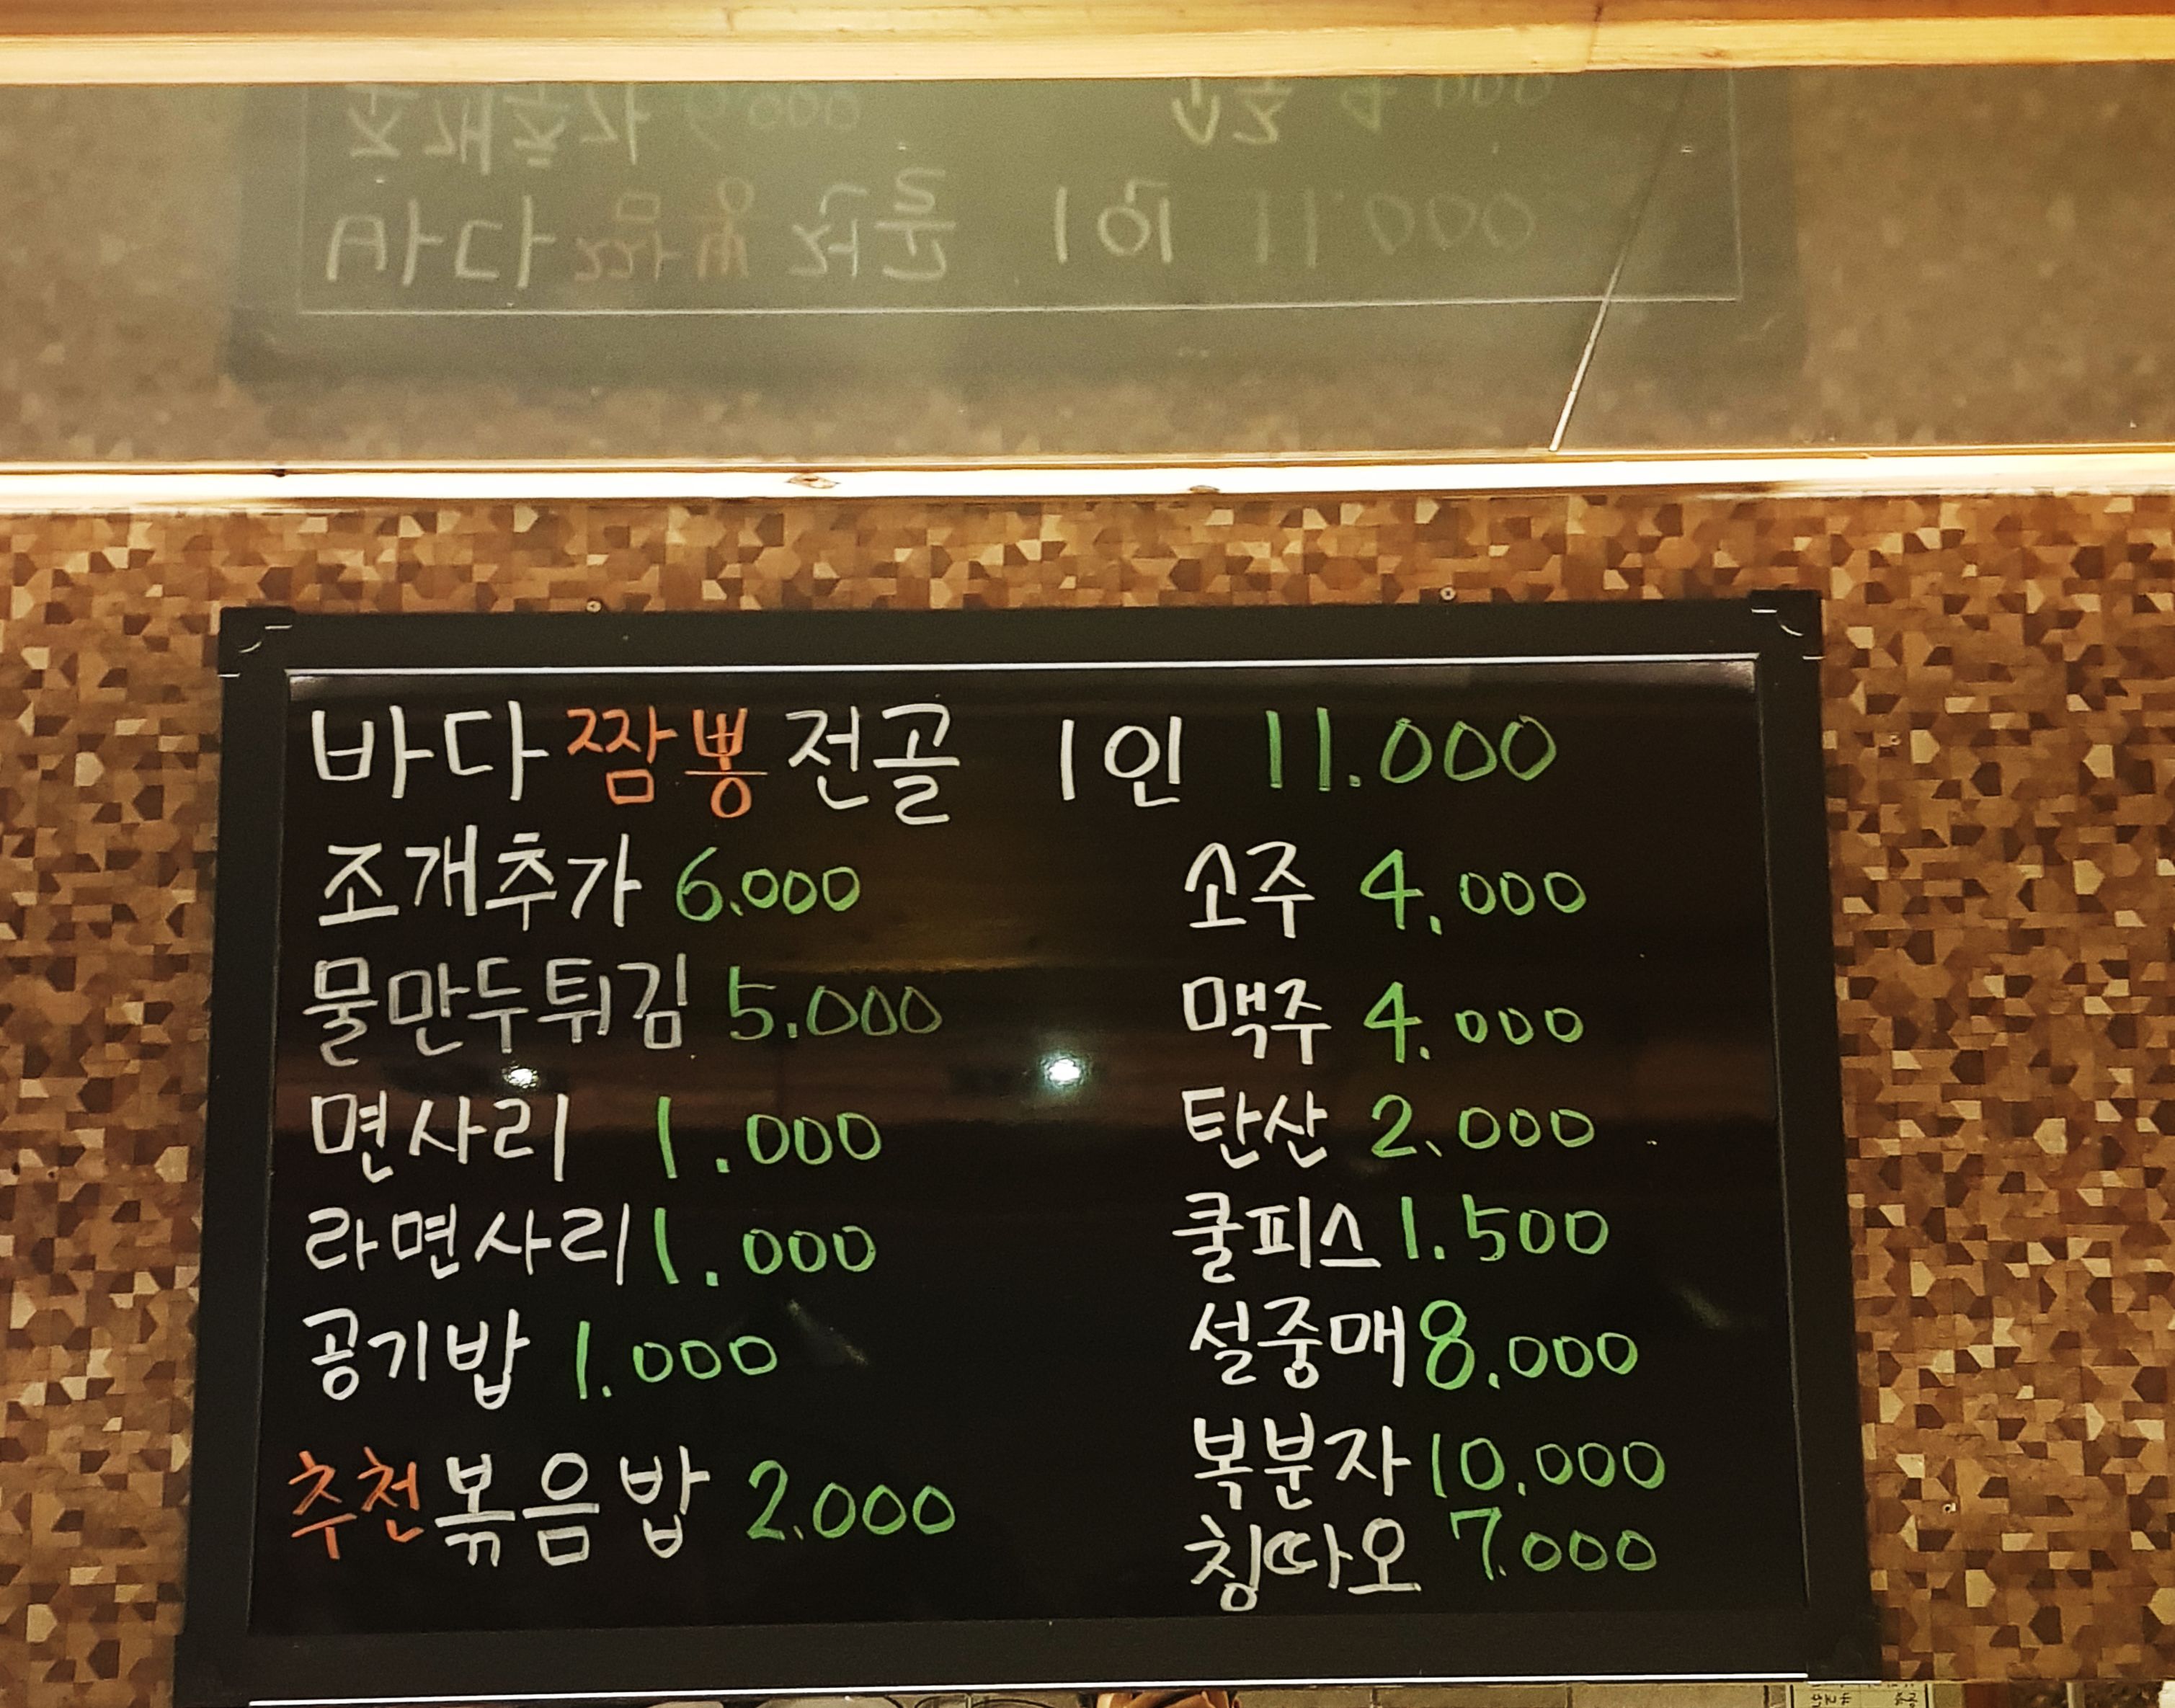 바다짬뽕전골 1인 11.000
조개추가 6.000
물만두튀김 5.000
면사리 1.000
라면사리 1.000
공기밥 1.000
추천 볶음밥 2.000
소주 4.000
맥주 4.000
탄산 2.000
쿨피스 1.500
설중매 8.000
복분자 10.000
칭따오 7.000